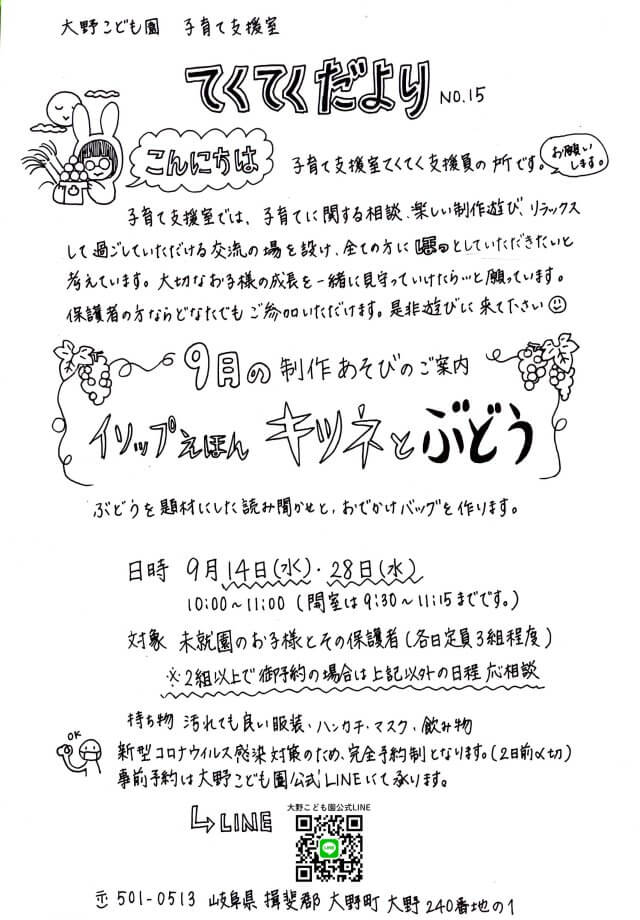 大野こども園 子育て支援室
てくてくだより NO.15
こんにちは
子育て支援室てくてく支援員の所です。
お願いします。
子育て支援室では、子育てに関する相談、楽しい制作遊び、リラックス
して過ごしていただける交流の場を設け、全ての方にほっとしていただきたいと
考えています。大切なお子様の成長を一緒に見守っていけたら…と願っています。
保護者の方ならどなたでもご参加いただけます。是非遊びに来て下さい
9月の制作あそびのご案内
イソップえほん キツネとぶどう
ぶどうを題材にした読み聞かせと、おでかけバッグを作ります。
日時 9月14日(水)・28日(水)
10:00~11:00 (開室は9:30~11:15までです。)
対象 未就園のお子様とその保護者(各日定員3組程度)
※2組以上で御予約の場合は上記以外の日程 応相談
持ち物 汚れても良い服装・ハンカチ・マスク、飲み物
OK
新型コロナウイルス感染対策のため、完全予約制となります。(2日前〆切)
事前予約は大野こども園公式LINEにて承ります。
大野こども園公式LINE
↳LINE
LINE
〒501-0513 岐阜県 揖斐郡 大野町 大野240番地の1